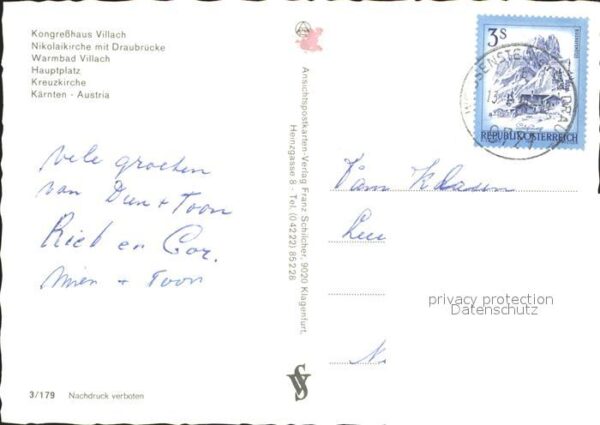 Kongreßhaus Villach
Nikolaikirche mit Draubrücke
Warmbad Villach
Hauptplatz
Kreuzkirche
Kärnten - Austria
vele groeten
van Dien + Toon
Rieb en Cor.
Mien + Toon
3/179 Nachdruck verboten
Ansichtspostkarten-Verlag Franz Schilcher, 9020 Klagenfurt,
Heinzgasse 8 - Tel. (0 42 22) 85 2 26
3S
REPUBLIK ÖSTERREICH
Fam Klaasen
N.
privacy protection
Datenschutz